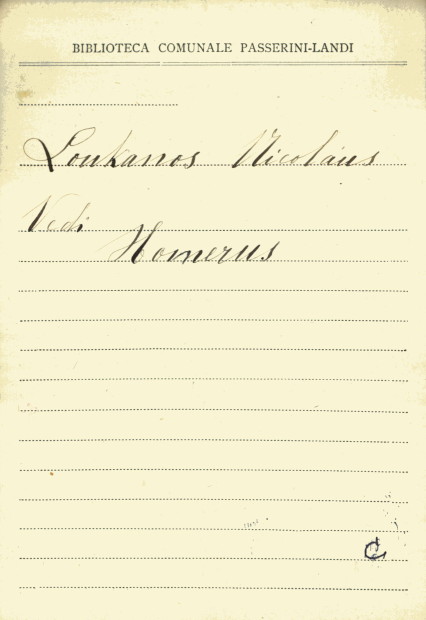 BIBLIOTECA COMUNALE PASSERINI-LANDI
Loukanos Nicolaus
Vedi
Homerus